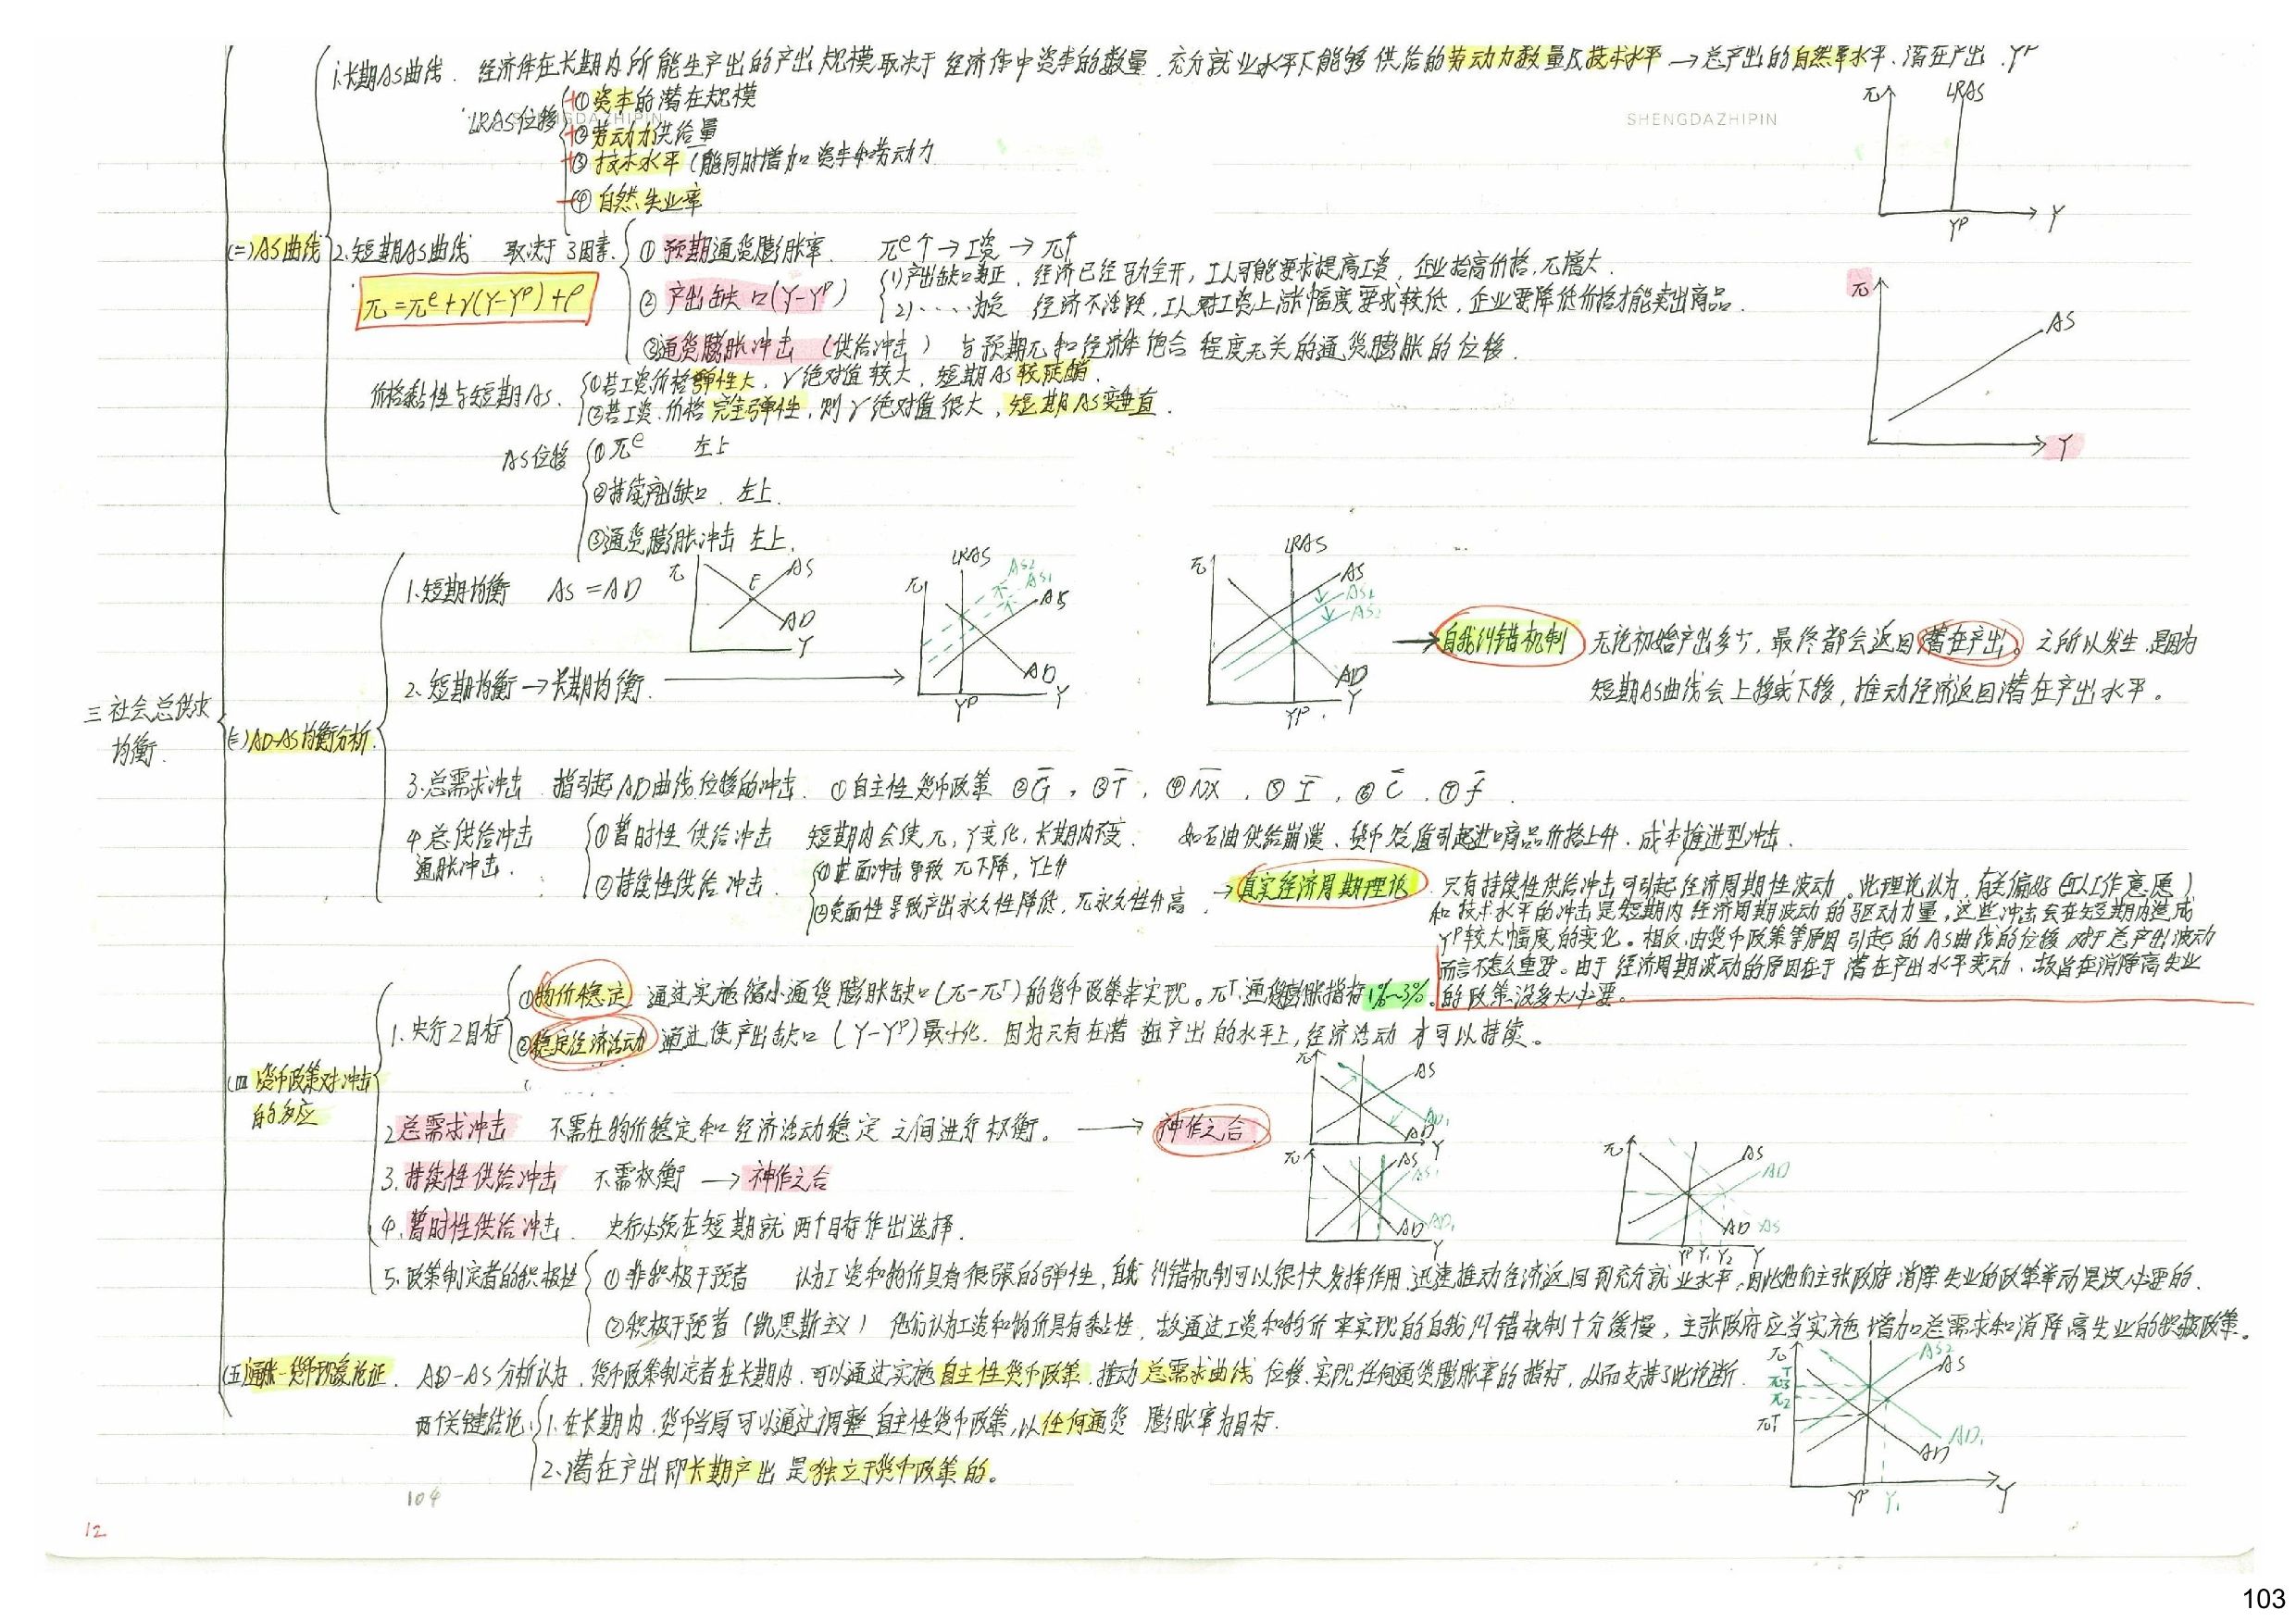 1.长期AS曲线. 经济体在长期内所能生产出的产出规模取决于经济体中资本的数量.充分就业水平下能够供给的劳动力数量及技术水平→总产出的自然率水平.潜在产出.Y^P
LRAS位移
+① 资本的潜在规模
+② 劳动力供给量
+③ 技术水平 (能同时增加资本和劳动力
-④ 自然失业率
SHENGDAZHIPIN
π LRAS
Y^P Y
(二)AS曲线
2.短期AS曲线 取决于3因素.
π=π^e+γ(Y-Y^P)+ρ
① 预期通货膨胀率. π^e↑→工资→π↑
② 产出缺口(Y-Y^P)
(1)产出缺口为正,经济已经马力全开,工人可能要求提高工资,企业抬高价格,π增大.
(2)....为负 经济不活跃,工人对工资上涨幅度要求较低,企业要降低价格才能卖出商品.
③通货膨胀冲击 (供给冲击) 与预期π和经济体饱合程度无关的通货膨胀的位移.
价格黏性与短期AS.
①若工资价格弹性大,γ绝对值较大,短期AS较陡峭.
②若工资.价格完全弹性,则γ绝对值很大,短期AS变垂直.
π AS Y
AS位移
①π^e 左上
②持续产出缺口. 左上.
③通货膨胀冲击 左上.
三 社会总供求均衡.
(三)AD-AS均衡分析
1.短期均衡 AS=AD
π E AS AD Y
2.短期均衡→长期均衡.
π LRAS AS2 AS1 AS AD Y^P Y
π LRAS AS AS1 AS2 AD Y^P Y
→自我纠错机制 无论初始产出多少,最终都会返回潜在产出。之所以发生,是因为
短期AS曲线会上移或下移,推动经济返回潜在产出水平。
3.总需求冲击 指引起AD曲线位移的冲击. ①自主性货币政策 ②G̅,③T̅,④N̅X̅,⑤I̅,⑥C̅,⑦f̅.
4 总供给冲击
通胀冲击.
①暂时性供给冲击 短期内会使π,Y变化,长期内不变. 如石油供给崩溃、货币贬值引起进口商品价格上升.成本推进型冲击.
②持续性供给冲击.
①正面冲击导致π下降,Y上升
②负面性导致产出永久性降低,π永久性升高.
→真实经济周期理论 只有持续性供给冲击可引起经济周期性波动。此理论认为,有关偏好(工人工作意愿)
和技术水平的冲击是短期内经济周期波动的驱动力量,这些冲击会在短期内造成
Y^P较大幅度的变化。相反,由货币政策等原因引起的AS曲线的位移对于总产出波动
而言不怎么重要。由于经济周期波动的原因在于潜在产出水平变动,故旨在消除高失业
的政策没多大必要。
(四 货币政策对冲击的反应
1.央行2目标
①物价稳定 通过实施缩小通货膨胀缺口(π-π^T)的货币政策来实现。π^T.通货膨胀指标1%~3%.
②稳定经济活动 通过使产出缺口(Y-Y^P)最小化.因为只有在潜在产出的水平上,经济活动才可以持续。
2总需求冲击 不需在物价稳定和经济活动稳定之间进行权衡。→神作之合.
π AS AD1 AD Y
3.持续性供给冲击 不需权衡→神作之合
π AS AS1 AD AD1 Y
4.暂时性供给冲击. 央行必须在短期就两个目标作出选择.
π AS AD AD AS Y^P Y1 Y2 Y
5.政策制定者的积极性
①非积极干预者 认为工资和物价具有很强的弹性,自我纠错机制可以很快发挥作用.迅速推动经济返回到充分就业水平,因此他们主张政府消除失业的政策举动是没必要的.
②积极干预者(凯恩斯主义) 他们认为工资和物价具有黏性,故通过工资和物价来实现的自我纠错机制十分缓慢,主张政府应当实施增加总需求和消除高失业的积极政策。
(五)通胀-货币现象论证. AD-AS分析认为,货币政策制定者在长期内.可以通过实施自主性货币政策,推动总需求曲线位移.实现任何通货膨胀率的指标,从而支持了此论断.
两个关键结论
1.在长期内.货币当局可以通过调整自主性货币政策,以任何通货膨胀率为目标.
2.潜在产出即长期产出是独立于货币政策的。
π π3^T π2 π^T AS2 AS AD1 AD Y^P Y1 Y
104
12
103